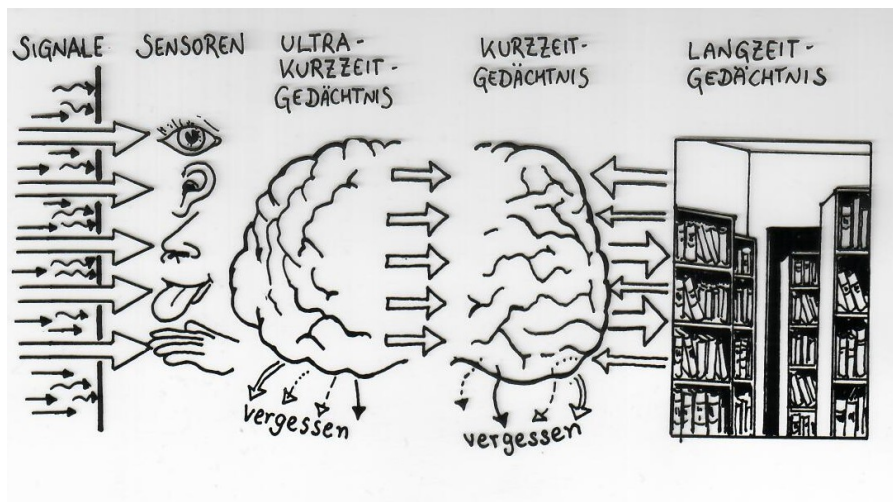 SIGNALE
SENSOREN
ULTRA-
KURZZEIT-
GEDÄCHTNIS
KURZZEIT-
GEDÄCHTNIS
LANGZEIT-
GEDÄCHTNIS
vergessen
vergessen